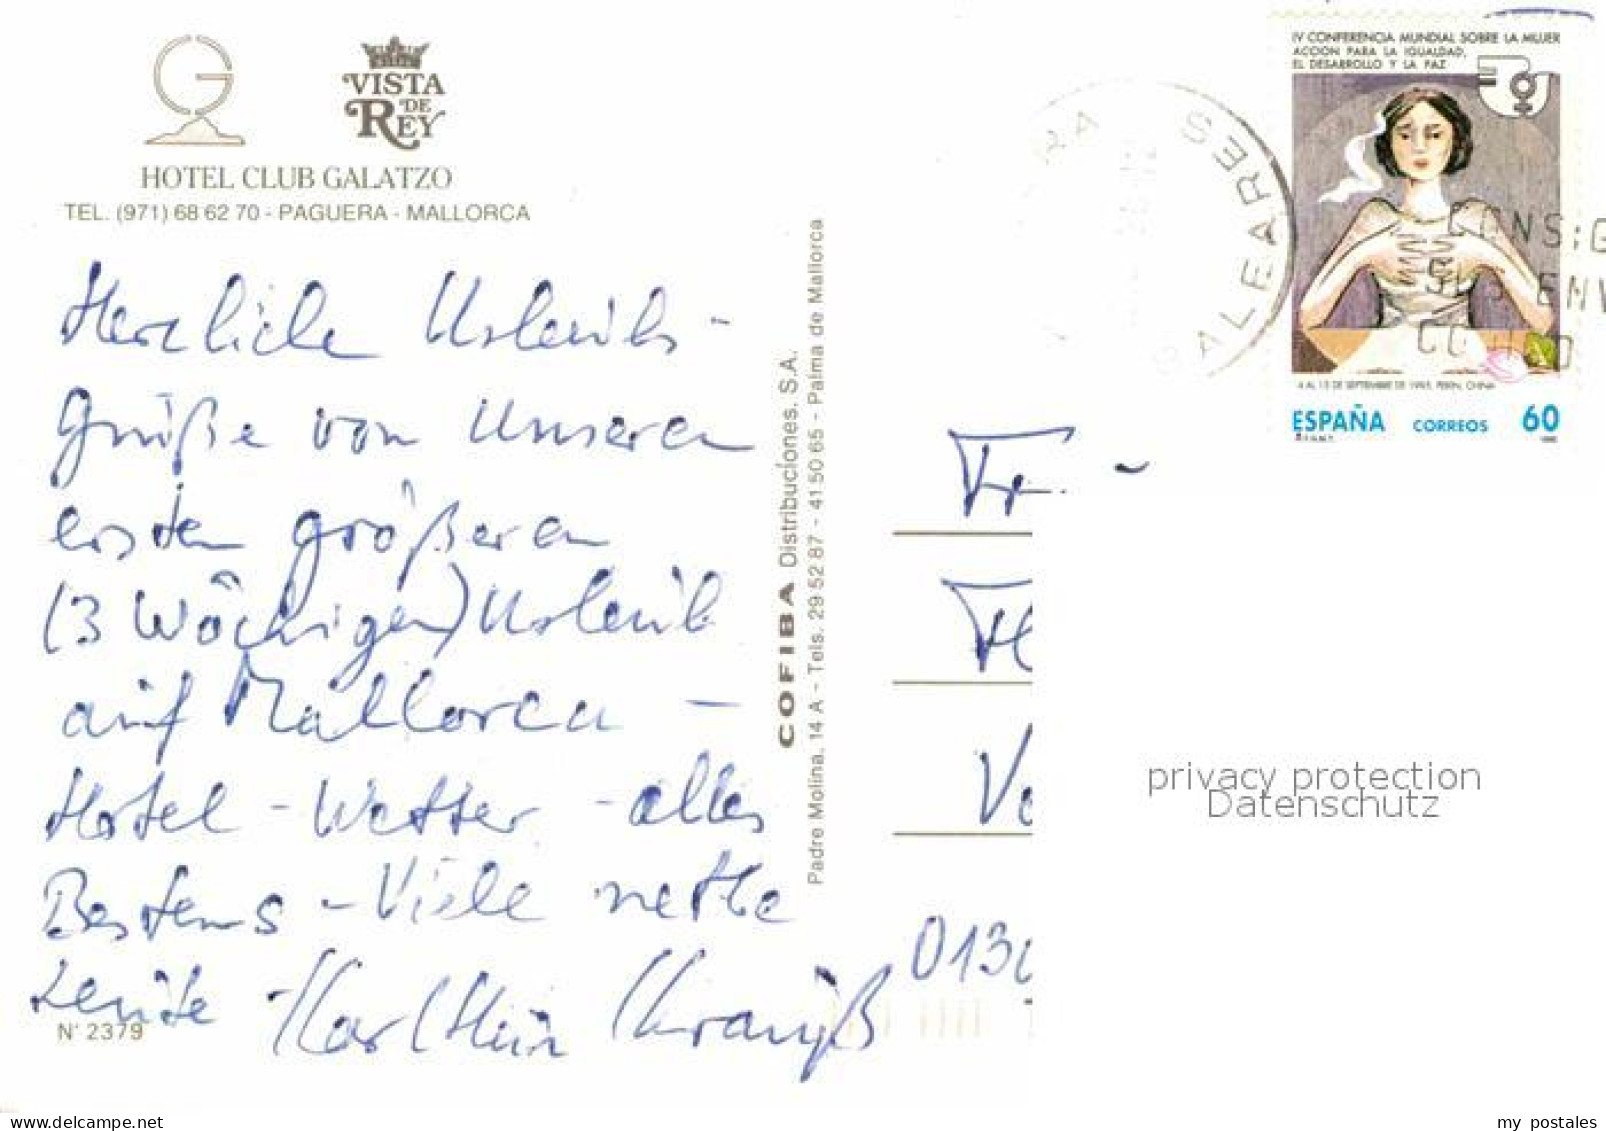 G
VISTA
DE
REY
HOTEL CLUB GALATZO
TEL. (971) 68 62 70 - PAGUERA - MALLORCA
Herzliche Urlaub's-
Grüße von unseren
ersten größeren
(3 Wöchigen) Urlaub
auf Mallorca -
Hotel - Wetter - alles
Bestens - Viele nette
Leute - Karl Hein Krauß
N° 2379
COFIBA Distribuciones, S.A.
Padre Molina, 14 A - Tels. 29 52 87 - 41 50 65 - Palma de Mallorca
IV CONFERENCIA MUNDIAL SOBRE LA MUJER
ACCION PARA LA IGUALDAD,
EL DESARROLLO Y LA PAZ
4 AL 15 DE SEPTIEMBRE DE 1995, PEKIN, CHINA
ESPAÑA CORREOS 60
BALEARES
CONSIG
SUS ENV
Fr.
V
013
privacy protection
Datenschutz
delcampe.net
my_postales